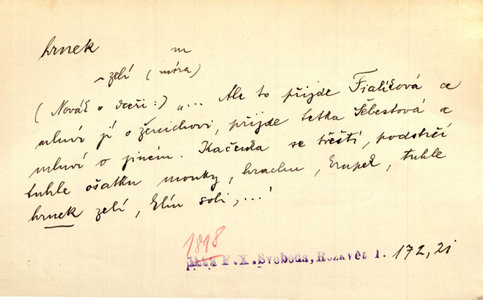 hrnek m
~ zelí (míra)
(Novák o dceři:) „... Ale to přijde Fialičková a
mluví jí o ženichovi, přijde tetka Šebestová a
mluví o jiném. Kačenka se třeští, podstrčí
tuhle ošatku mouky, hrachu, krupek, tuhle
hrnek zelí, hlín soli, ...“
1898
F. X. Svoboda, Rozkvět 1. 172, 21